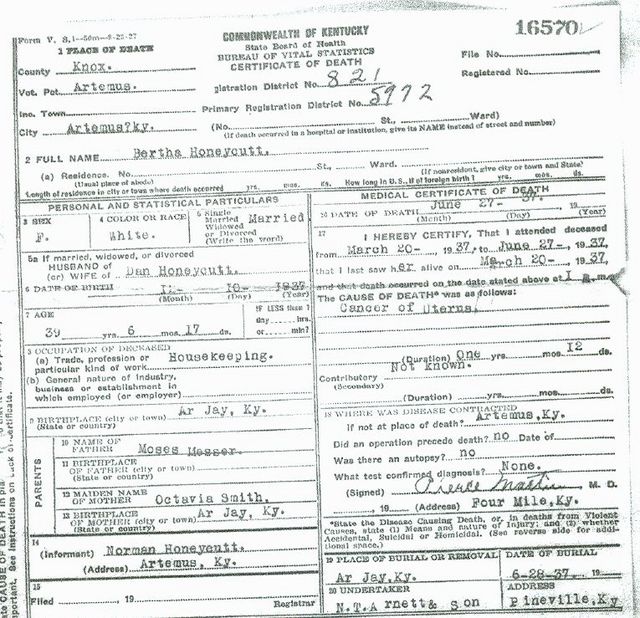 Form V. S. 1-50m-9-23-27
COMMONWEALTH OF KENTUCKY
State Board of Health
BUREAU OF VITAL STATISTICS
CERTIFICATE OF DEATH
16570
1 PLACE OF DEATH
County Knox.
Vot. Pct. Artemus.
Inc. Town
City Artemus?ky.
File No.
Registered No.
gistration District No. 821
Primary Registration District No. 5972
(No. St., Ward)
(If death occurred in a hospital or institution, give its NAME instead of street and number)
2 FULL NAME Bertha Honeycutt.
(a) Residence. No. St., Ward.
(Usual place of abode) (If nonresident, give city or town and State)
Length of residence in city or town where death occurred yrs. mos. ds. How long in U.S., if of foreign birth? yrs. mos. ds.
PERSONAL AND STATISTICAL PARTICULARS
3 SEX F.
4 COLOR OR RACE White.
5 Single Married Widowed or Divorced (Write the word) Married
5a If married, widowed, or divorced
HUSBAND of
(or) WIFE of Dan Honeycutt.
6 DATE OF BIRTH 12- 10- 1937
(Month) (Day) (Year)
7 AGE
39 yrs. 6 mos. 17 ds.
IF LESS than 1
day hrs.
or min?
8 OCCUPATION OF DECEASED
(a) Trade, profession or
particular kind of work Housekeeping.
(b) General nature of industry,
business or establishment in
which employed (or employer)
9 BIRTHPLACE (city or town) Ar Jay, Ky.
(State or country)
PARENTS
10 NAME OF
FATHER Moses Messer.
11 BIRTHPLACE
OF FATHER (city or town)
(State or country)
12 MAIDEN NAME
OF MOTHER Octavia Smith.
13 BIRTHPLACE Ar Jay, Ky.
OF MOTHER (city or town)
(State or country)
14
(Informant) Norman Honeycutt.
(Address) Artemus, Ky.
15
Filed , 19
Registrar
MEDICAL CERTIFICATE OF DEATH
16 DATE OF DEATH June 27- 37. , 19
(Month) (Day) (Year)
17 I HEREBY CERTIFY, That I attended deceased
from March 20- , 1937, to June 27- , 1937,
that I last saw her alive on March 20- , 1937,
and that death occurred on the date stated above at 1
The CAUSE OF DEATH* was as follows:
Cancer of Uterus.
(Duration) One yrs. mos. 12 ds.
Contributory Not known.
(Secondary)
(Duration) yrs. mos. ds.
18 WHERE WAS DISEASE CONTRACTED
if not at place of death? Artemus, Ky.
Did an operation precede death? no Date of
Was there an autopsy? no
What test confirmed diagnosis? None.
(Signed) Pierce Martin M. D.
, 19 (Address) Four Mile, Ky.
*State the Disease Causing Death, or, in deaths from Violent
Causes, state (1) Means and nature of Injury; and (2) whether
Accidental, Suicidal or Homicidal. (See reverse side for addi-
tional space.)
19 PLACE OF BURIAL OR REMOVAL
Ar Jay, Ky.
DATE OF BURIAL
6-28-37. 19
20 UNDERTAKER
N.T.Arnett& Son
ADDRESS
Pineville, Ky